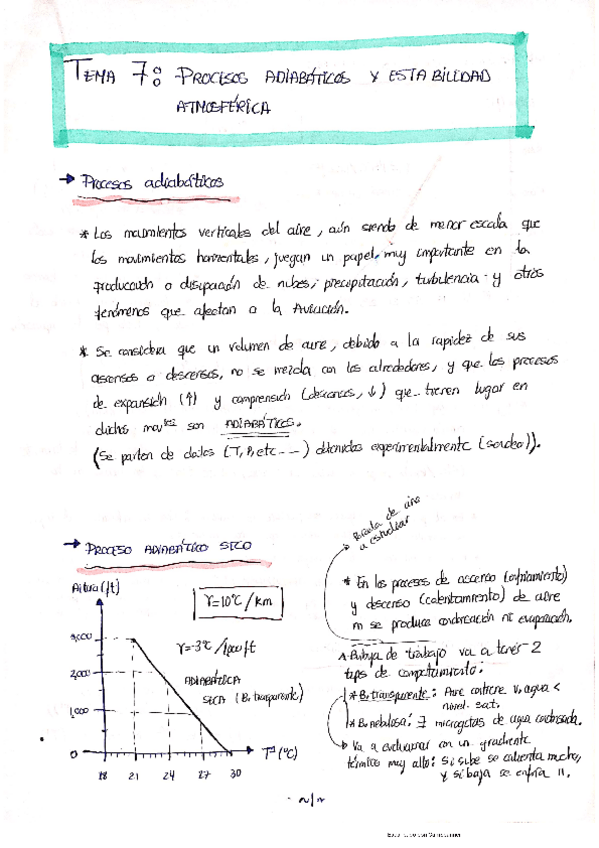 TEMA 7: PROCESOS ADIABÁTICOS Y ESTABILIDAD
ATMOSFÉRICA
→ Procesos adiabáticos
* Los movimientos verticales del aire, aún siendo de menor escala que
los movimientos horizontales, juegan un papel muy importante en la
producción o disipación de nubes, precipitación, turbulencia y otros
fenómenos que afectan a la Aviación.
* Se considera que un volumen de aire, debido a la rapidez de sus
ascensos o descensos, no se mezcla con los alrededores, y que los procesos
de expansión (↑) y comprensión (descensos, ↓) que tienen lugar en
dichos movtos son ADIABÁTICOS.
(Se parten de datos (T, P, etc...) obtenidos experimentalmente (sondeo)).
→ PROCESO ADIABÁTICO SECO
Altura (ft)
γ=10°C/km
γ=-3°C/1000ft
ADIABÁTICA
SECA (B. transparente)
3,000
2,000
1,000
0
18 21 24 27 30
Tª (°C)
Burbuja de aire
a estudiar
* En los procesos de ascenso (enfriamiento)
y descenso (calentamiento) de aire
no se produce condensación ni evaporación.
Burbuja de trabajo va a tener 2
tipos de comportamiento:
* B. transparente: Aire contiene v. agua <
nivel sat.
* B. nebulosa: ∃ microgotas de agua condensada.
Va a evolucionar con un gradiente
térmico muy alto: Si sube se calienta mucho,
y si baja se enfría 11.